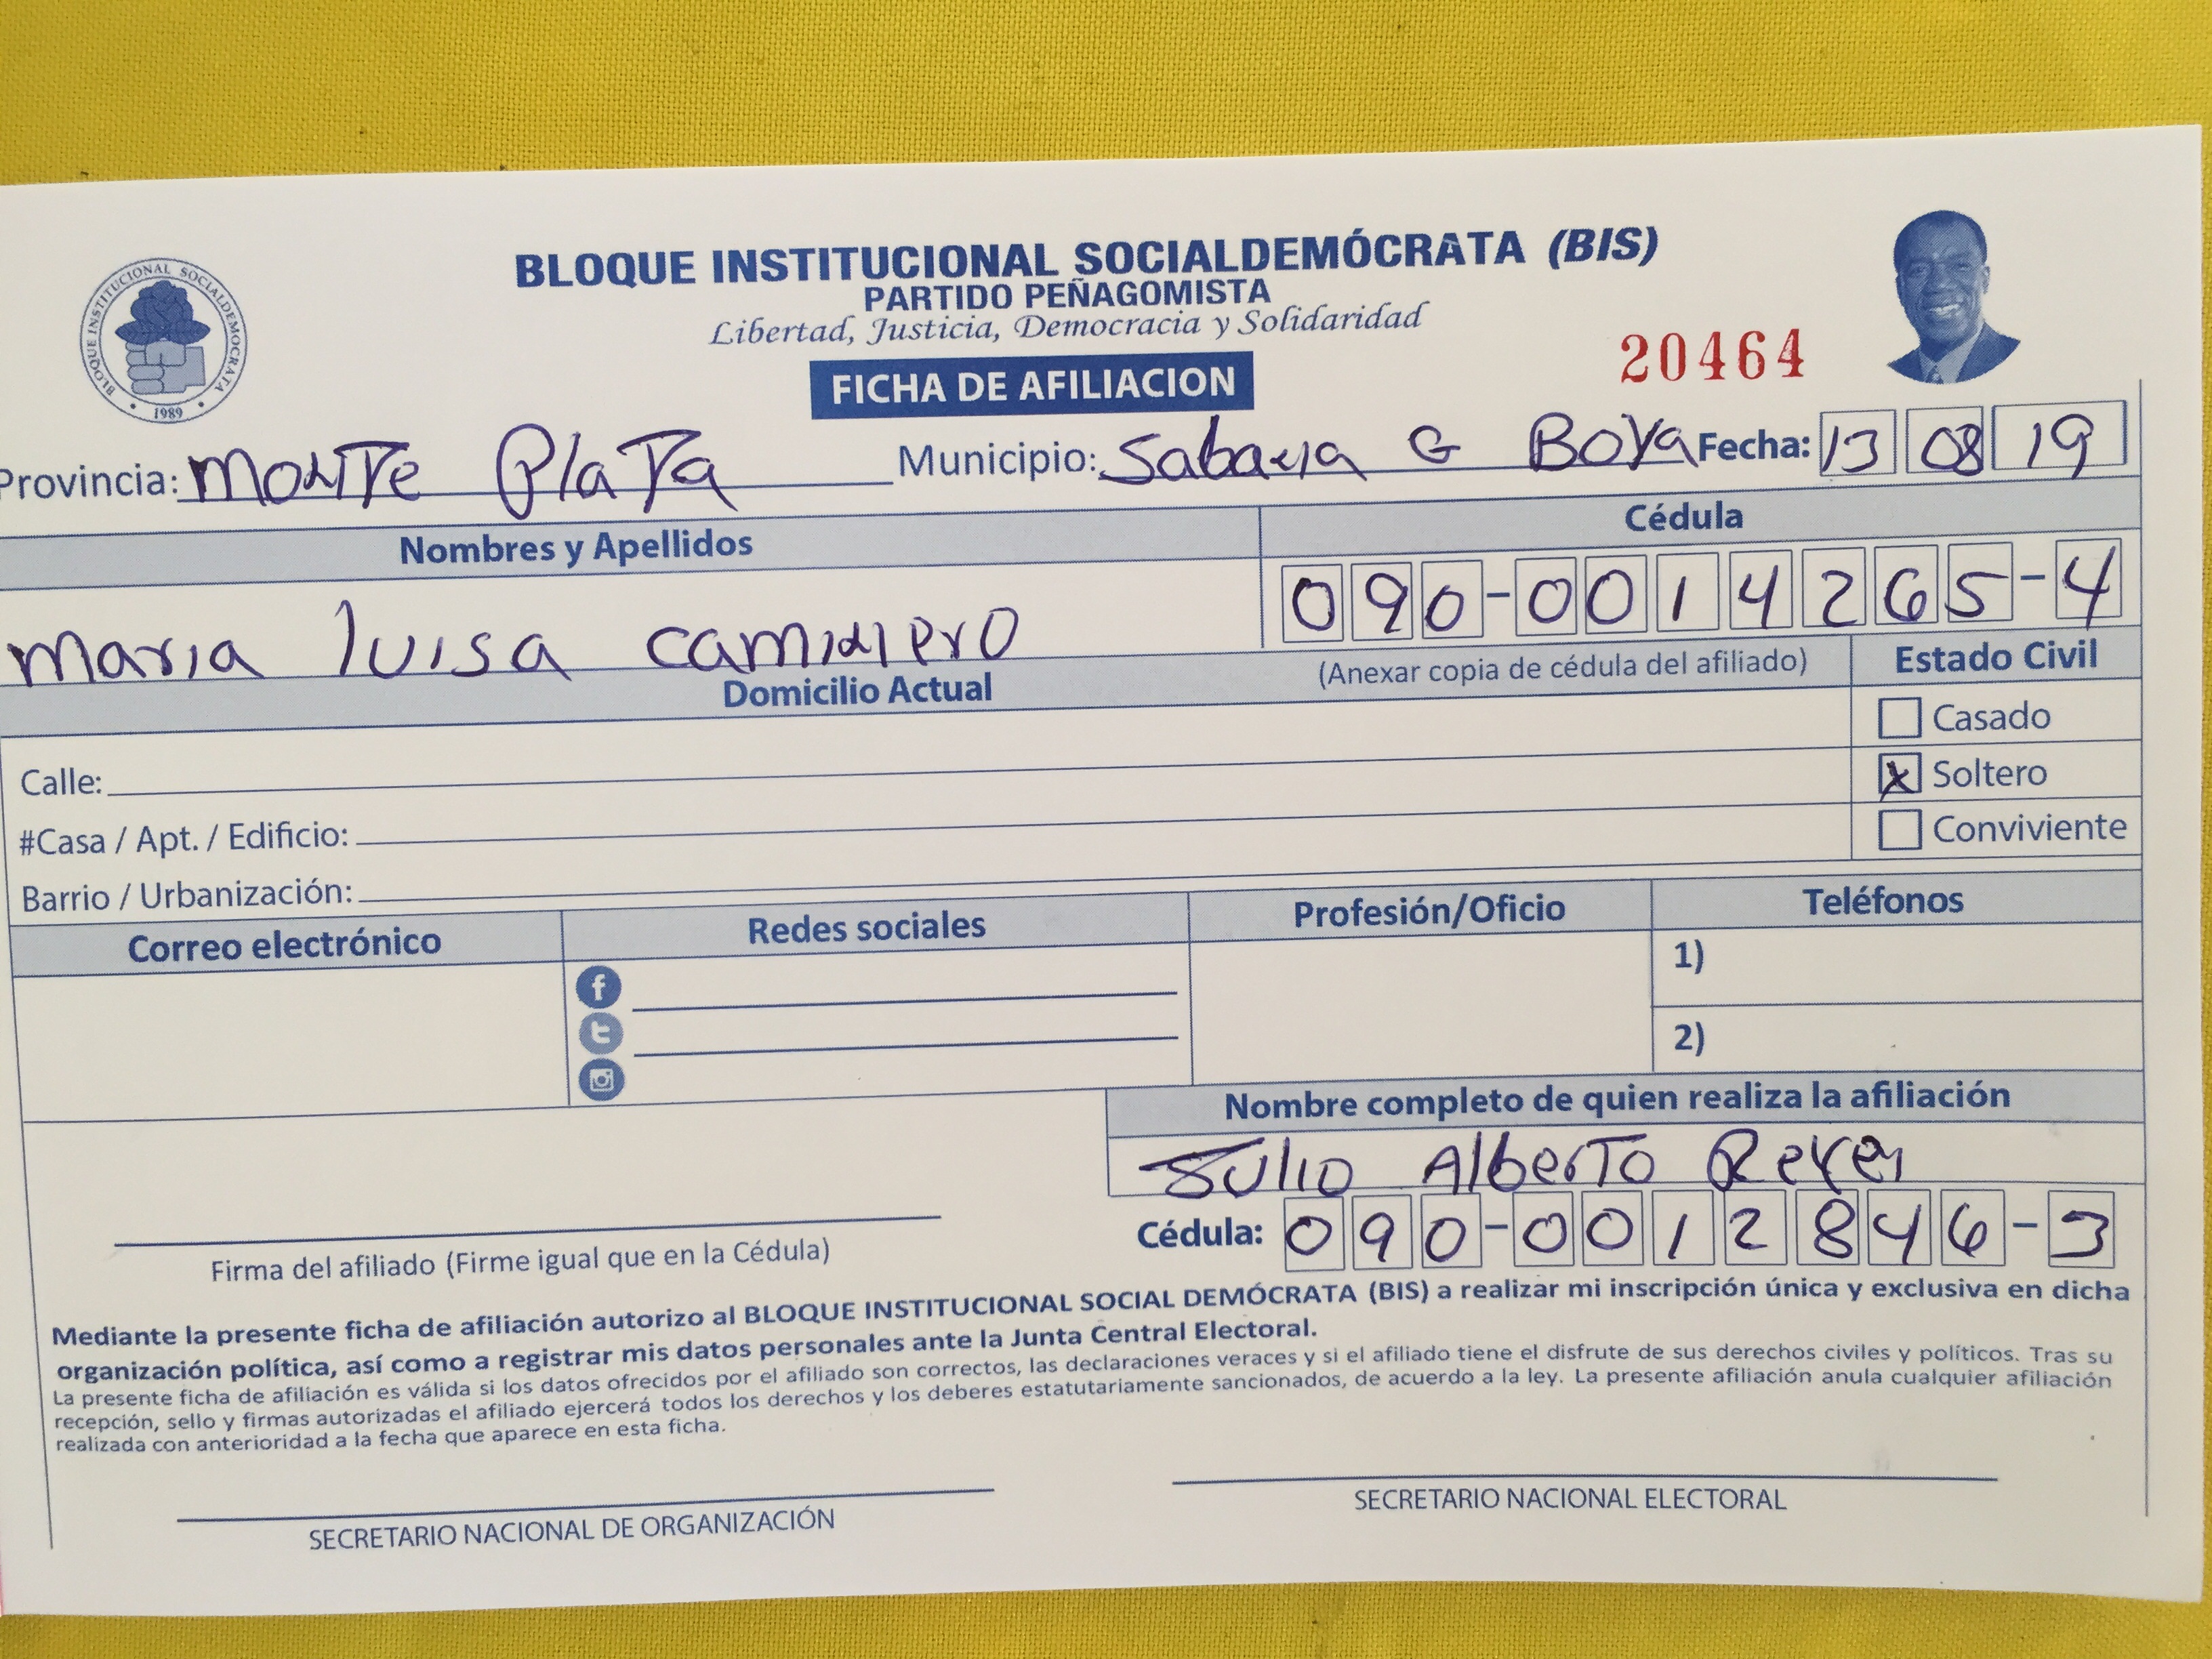 BLOQUE INSTITUCIONAL SOCIALDEMÓCRATA (BIS)
PARTIDO PEÑAGOMISTA
Libertad, Justicia, Democracia y Solidaridad
BLOQUE INSTITUCIONAL SOCIALDEMOCRATA
• 1989 •
20464
FICHA DE AFILIACION
Provincia: Monte Plata Municipio: Sabana G Boya Fecha: 13 08 19
Nombres y Apellidos Cédula
maria luisa caminero 090-0014265-4
Domicilio Actual (Anexar copia de cédula del afiliado) Estado Civil
Casado
Calle: X Soltero
#Casa / Apt. / Edificio: Conviviente
Barrio / Urbanización:
Correo electrónico Redes sociales Profesión/Oficio Teléfonos
1)
2)
Nombre completo de quien realiza la afiliación
Julio Alberto Reyes
Cédula: 090-0012846-3
Firma del afiliado (Firme igual que en la Cédula)
Mediante la presente ficha de afiliación autorizo al BLOQUE INSTITUCIONAL SOCIAL DEMÓCRATA (BIS) a realizar mi inscripción única y exclusiva en dicha
organización política, así como a registrar mis datos personales ante la Junta Central Electoral.
La presente ficha de afiliación es válida si los datos ofrecidos por el afiliado son correctos, las declaraciones veraces y si el afiliado tiene el disfrute de sus derechos civiles y políticos. Tras su
recepción, sello y firmas autorizadas el afiliado ejercerá todos los derechos y los deberes estatutariamente sancionados, de acuerdo a la ley. La presente afiliación anula cualquier afiliación
realizada con anterioridad a la fecha que aparece en esta ficha.
SECRETARIO NACIONAL DE ORGANIZACIÓN SECRETARIO NACIONAL ELECTORAL